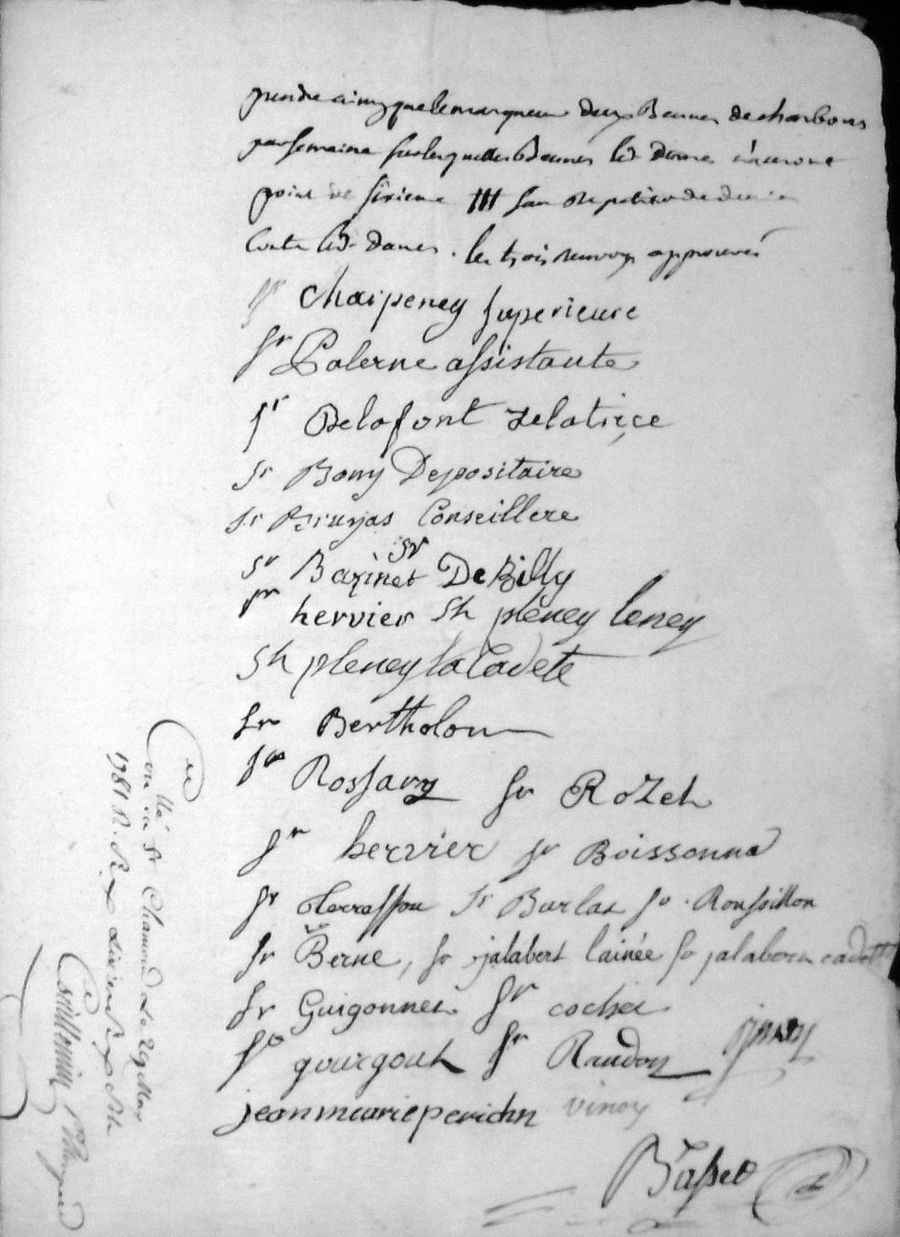 prendre ainsy que le marqueur deux Bennes de charbons
par semaine sur lesquelles Bennes lesd. dames n'auront
point sixieme ttt sans repetition de
Contre lesd. dames. les trois renvoys approuvés
Sr Charpeney superieure
Sr Palerne assistante
Sr Delafont Zelatrice
Sr Bony Depositaire
Sr Brujas Conseillere
Sr Barinet Sr De Billy
Sr hervier Sh pleney leney
Sh pleney la Cadete
Sr Bertholon
Sr Rossary Sr Rozet
Sr hervier Sr Boissonna
Sr terrasson Sr Burlat Sr Roussillon
Sr Berne, Sr jalabert lainée Sr jalabert cadette
Sr Guigonnet Sr cochet
Sr gourgout Sr Raudon
jean marie perichn viney
Basset
Collé a St Chamond le 29 May
1781 R.
Guillemin